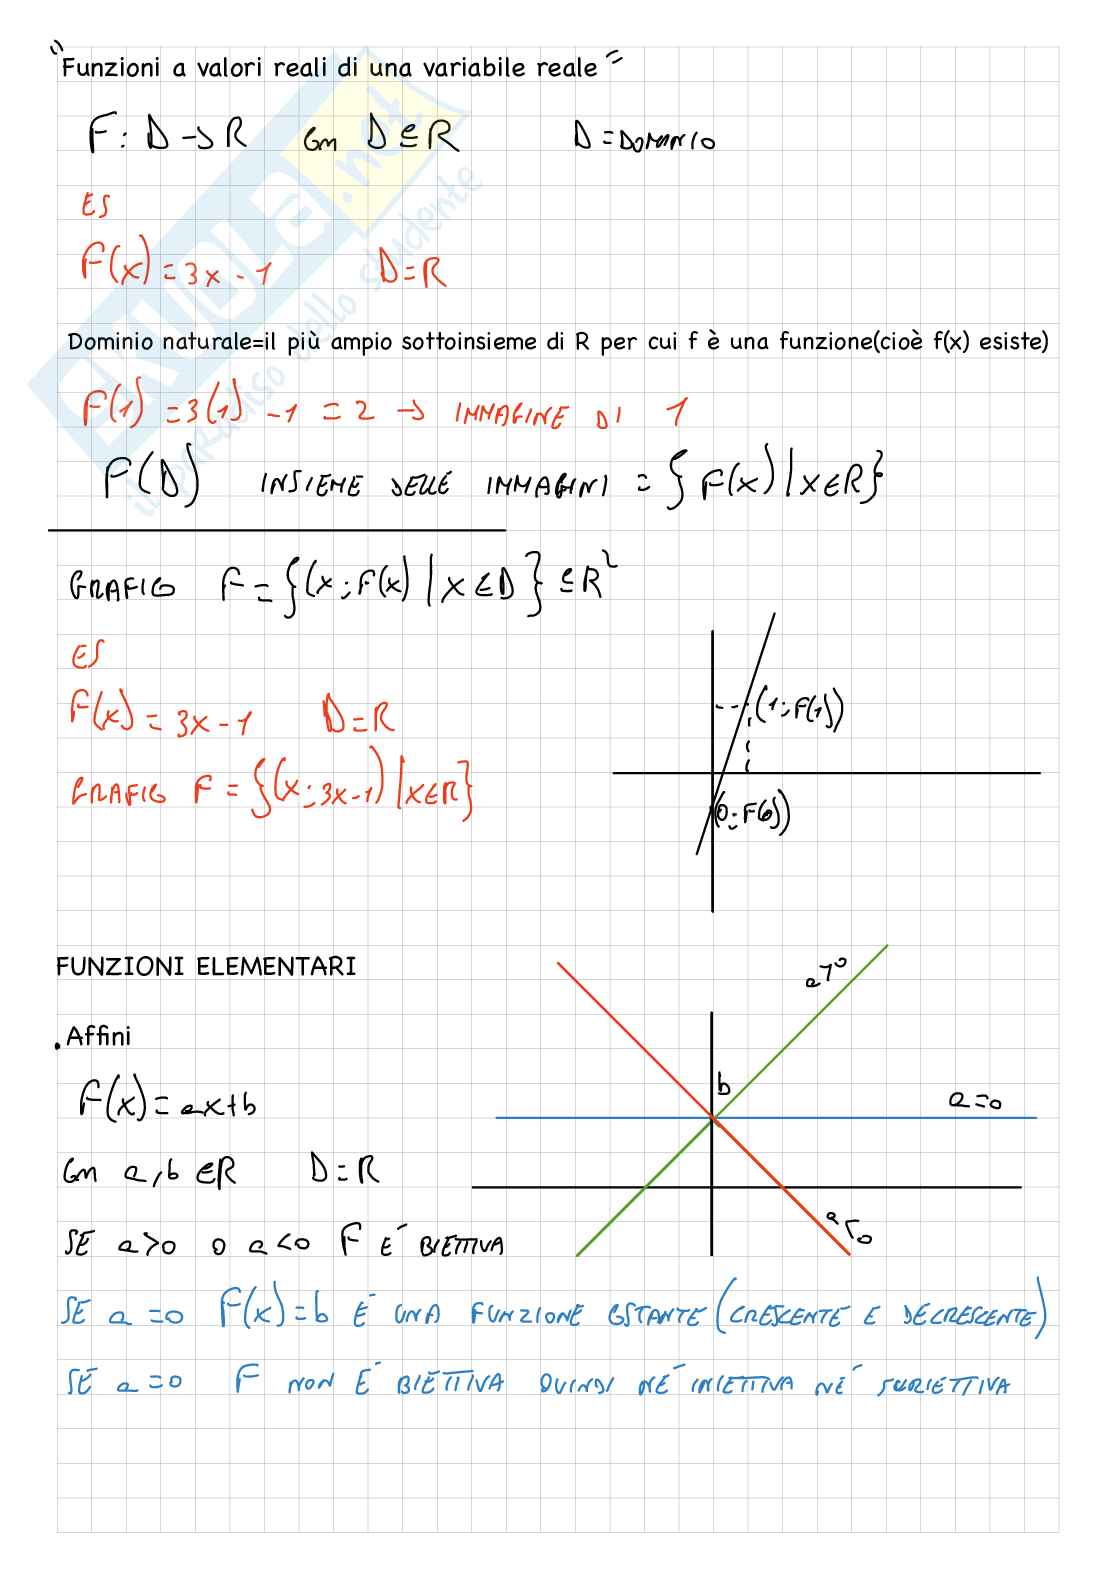 "Funzioni a valori reali di una variabile reale"
F: D → R con D ⊆ R D = DOMINIO
ES
F(x) = 3x - 1 D = R
Dominio naturale=il più ampio sottoinsieme di R per cui f è una funzione(cioè f(x) esiste)
F(1) = 3(1) - 1 = 2 → IMMAGINE DI 1
F(D) INSIEME DELLE IMMAGINI = { F(x) | x ∈ R }
GRAFICO F = { (x ; F(x) | x ∈ D } ⊆ R²
ES
F(x) = 3x - 1 D = R
GRAFICO F = { (x ; 3x-1) | x ∈ R }
(1 ; F(1))
(0 ; F(0))
FUNZIONI ELEMENTARI
. Affini
F(x) = ax + b
con a, b ∈ R D = R
SE a > 0 o a < 0 F E' BIETTIVA
a > 0
b
a = 0
a < 0
SE a = 0 F(x) = b E' UNA FUNZIONE COSTANTE (CRESCENTE E DECRESCENTE)
SE a = 0 F NON E' BIETTIVA QUINDI NE' INIETTIVA NE' SURIETTIVA
SKUOLA.net
il paradiso dello studente